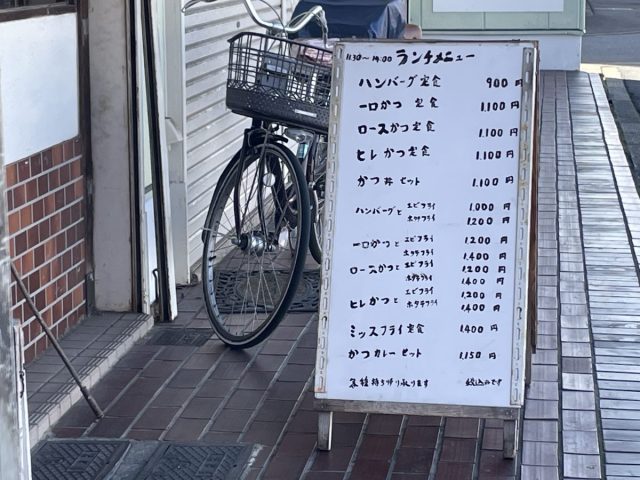 11:30〜14:00 ランチメニュー
ハンバーグ定食 900円
一口かつ 定食 1,100円
ロースかつ定食 1,100円
ヒレかつ定食 1,100円
かつ丼セット 1,100円
ハンバーグと エビフライ 1,000円
ホタテフライ 1,200円
一口かつと エビフライ 1,200円
ホタテフライ 1,400円
ロースかつと エビフライ 1,200円
ホタテフライ 1,400円
ヒレかつと エビフライ 1,200円
ホタテフライ 1,400円
ミックスフライ定食 1,400円
かつカレーセット 1,150円
各種持ち帰り承ります 税込みです